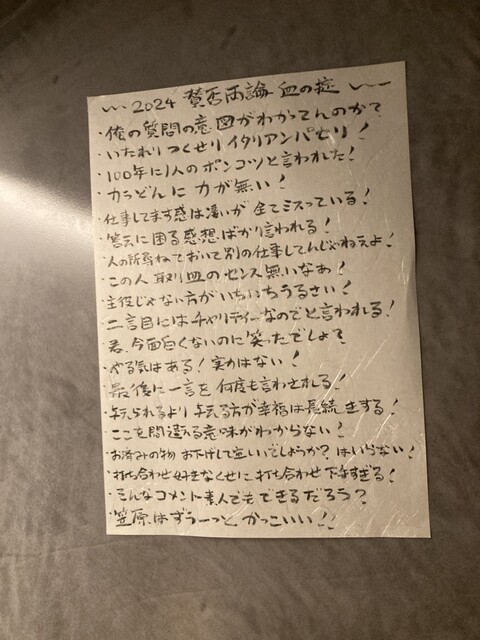 〰 2024 賛否両論 血の掟 〰
・俺の質問の意図がわかってんのか?
・いたれりつくせりイタリアンパセリ!
・100年に1人のポンコツと言われた!
・力うどんに力が無い!
・仕事してます感は凄いが全てミスっている!
・答えに困る感想ばかり言われる!
・人の所尋ねておいて別の仕事してんじゃねえよ!
・この人取り皿のセンス無いなぁ!
・主役じゃない方がいちいちうるさい!
・二言目にはチャリティーなのでと言われる!
・君、今面白くないのに笑ったでしょ?
・やる気はある!実力はない!
・最後に一言を何度も言わされる!
・与えられるより与える方が幸福は長続きする!
・ここを間違える意味がわからない!
・お済みの物お下げして宜いでしょうか?はいらない!
・打ち合わせ好きなくせに打ち合わせ下手すぎる!
・そんなコメント素人でもできるだろう?
・笠原はずぅーっとかっこいい!!